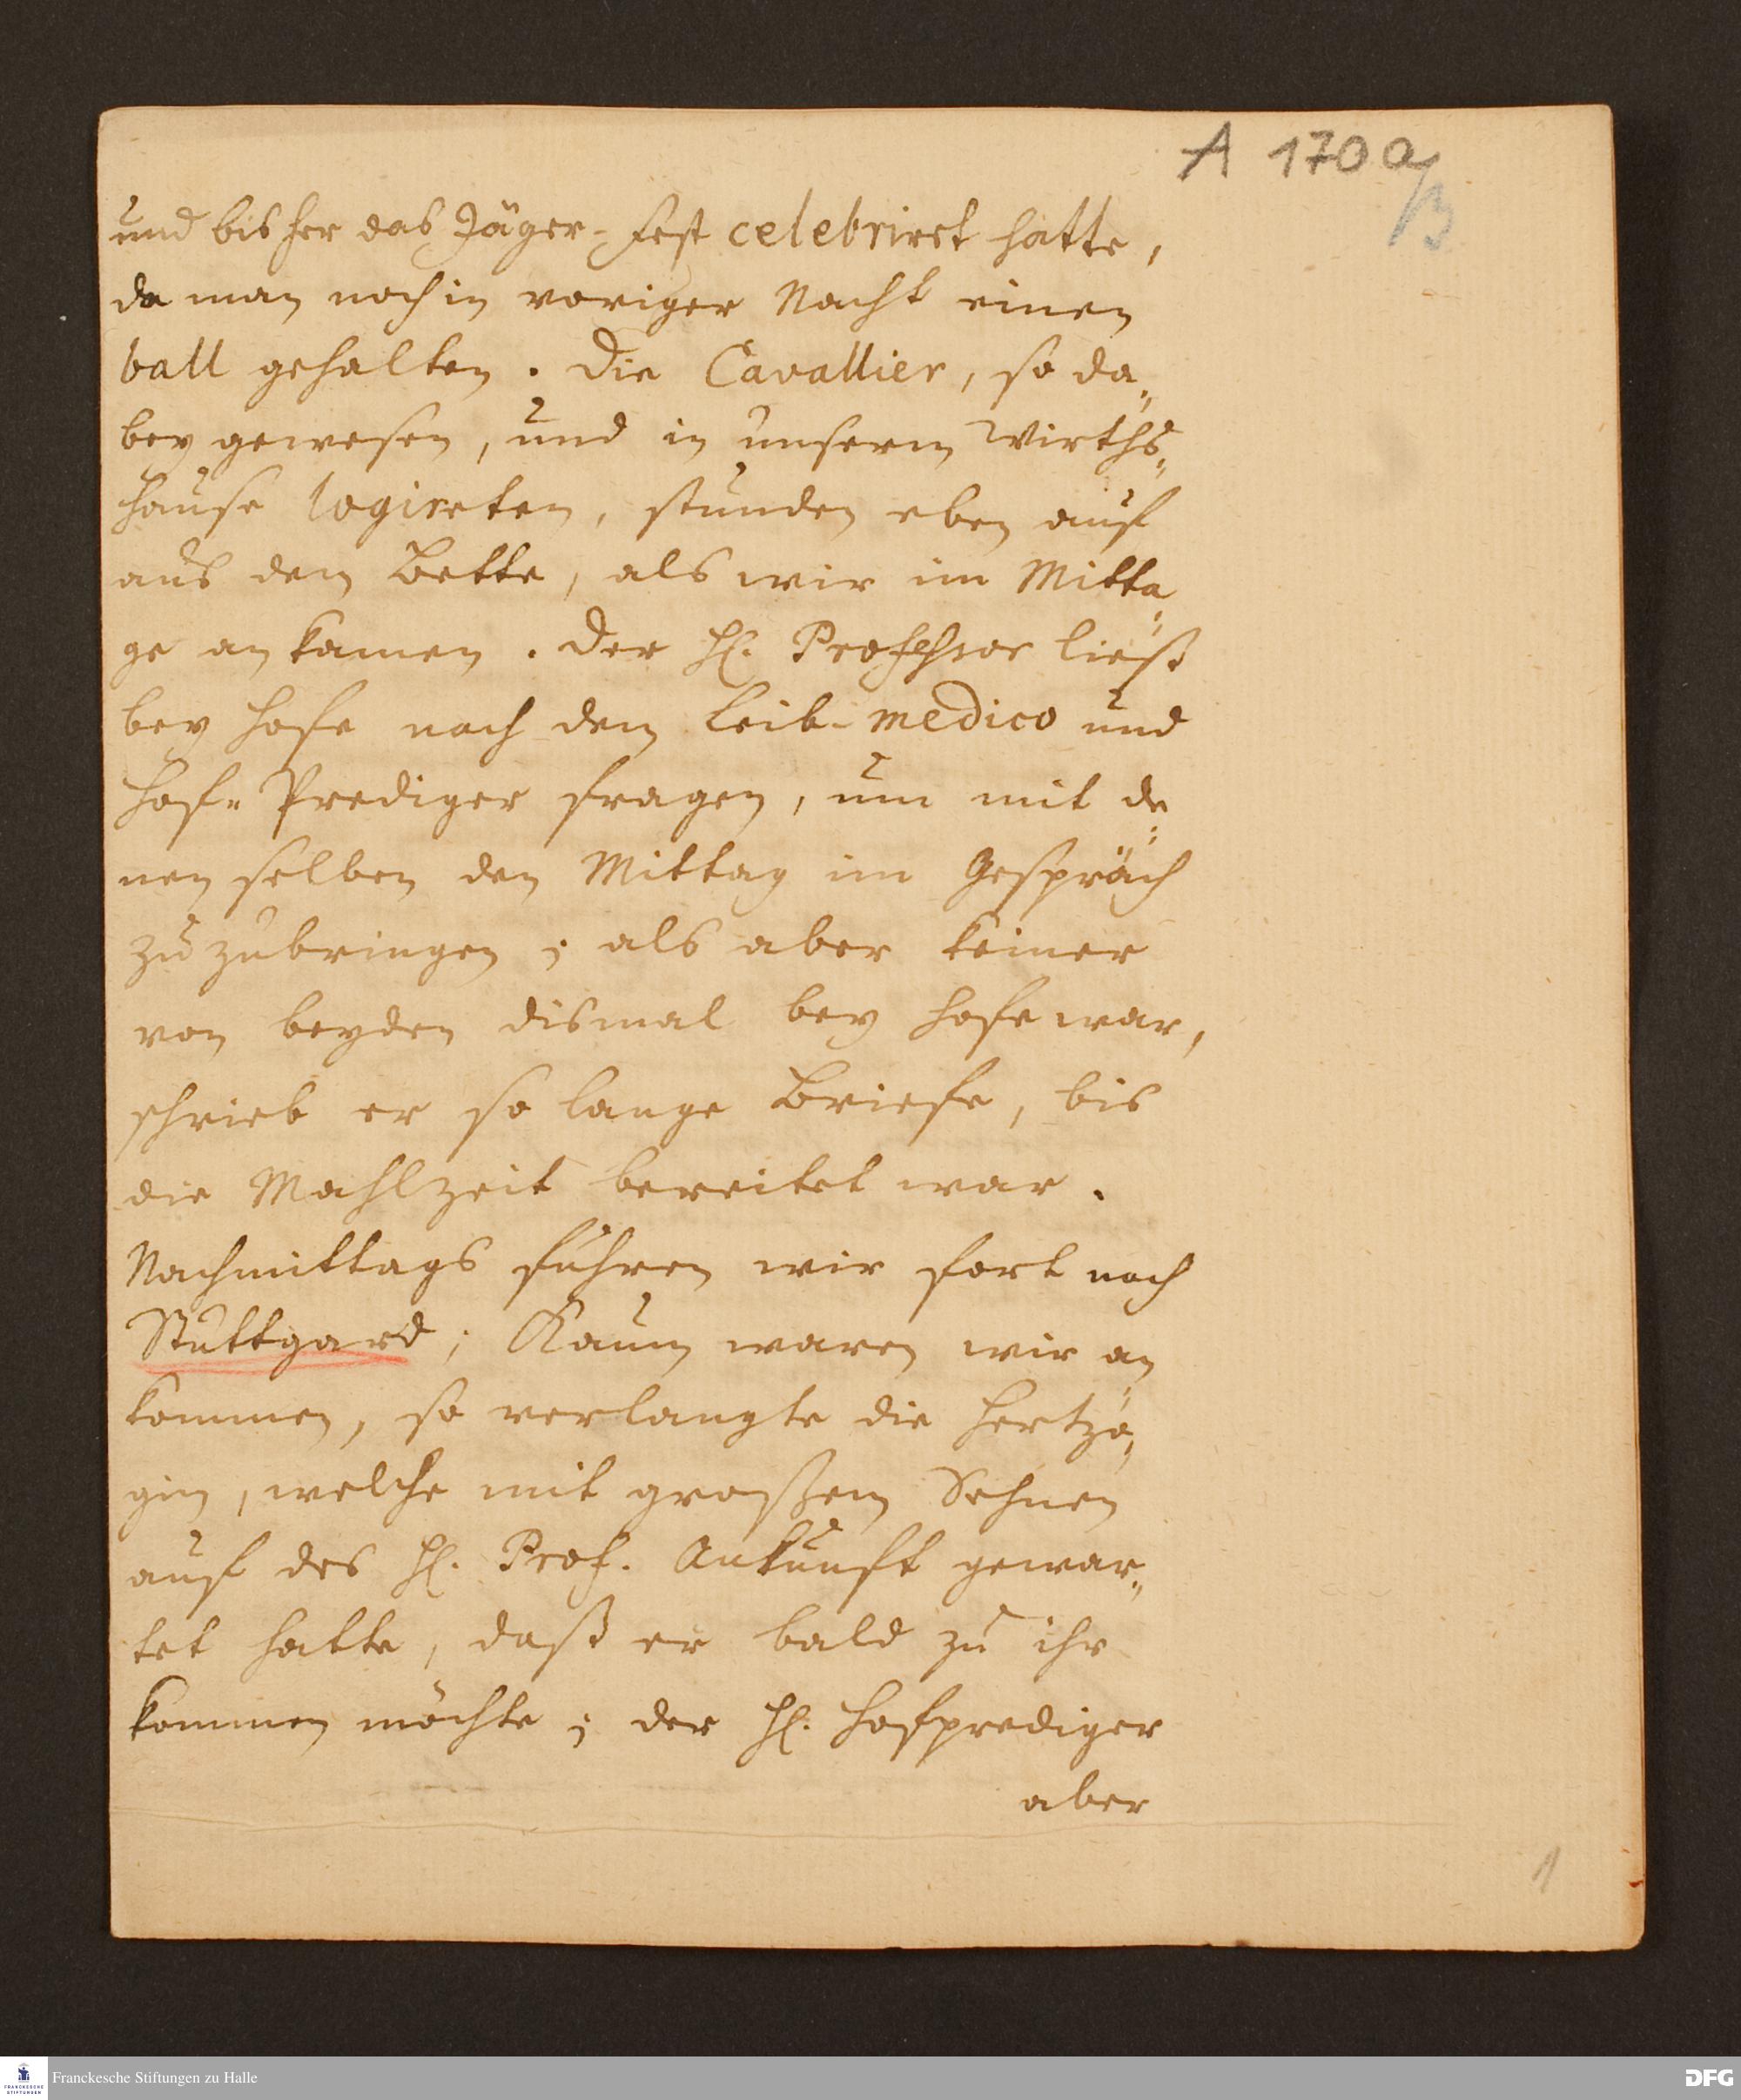 A 170 a
B
und bisher das Jäger-Fest celebriret hatte,
da man noch in voriger Nacht einen
ball gehalten. Die Cavallier, so da„
bey gewesen, und in unserm Wirths„
hause logireten, stunden eben auf
aus dem Bette, als wir im Mitta„
ge an kamen. Der H. Professor ließ
bey Hofe nach dem Leib-medico und
Hof-Prediger fragen, um mit de„
nen selben den Mittag im Gespräch
zu zubringen; als aber keiner
von beyden dismal bey Hofe war,
schrieb er so lange Briefe, bis
die Mahlzeit bereitet war.
Nachmittags fuhren wir fort nach
Stuttgard; Kaum waren wir an„
kommen, so verlangte die Hertzo„
gin, welche mit großem Sehnen
auf des H. Prof. Ankunft gewar„
tet hatte, daß er bald zu ihr
kommen möchte; der H. Hofprediger
aber
1
FRANCKESCHE STIFTUNGEN
Franckesche Stiftungen zu Halle
DFG